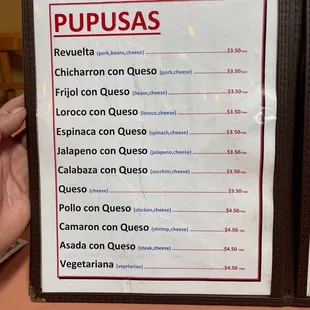 PUPUSAS
Revuelta (pork,beans,cheese) $3.50
Chicharron con Queso (pork,cheese) $3.50
Frijol con Queso (beans,cheese) $3.50
Loroco con Queso (loroco,cheese) $3.50
Espinaca con Queso (spinach,cheese) $3.50
Jalapeno con Queso (jalapeno,cheese) $3.50
Calabaza con Queso (zucchini,cheese) $3.50
Queso (cheese) $3.50
Pollo con Queso (chicken,cheese) $4.50
Camaron con Queso (shrimp,cheese) $4.50
Asada con Queso (steak,cheese) $4.50
Vegetariana (vegetarian) $4.50